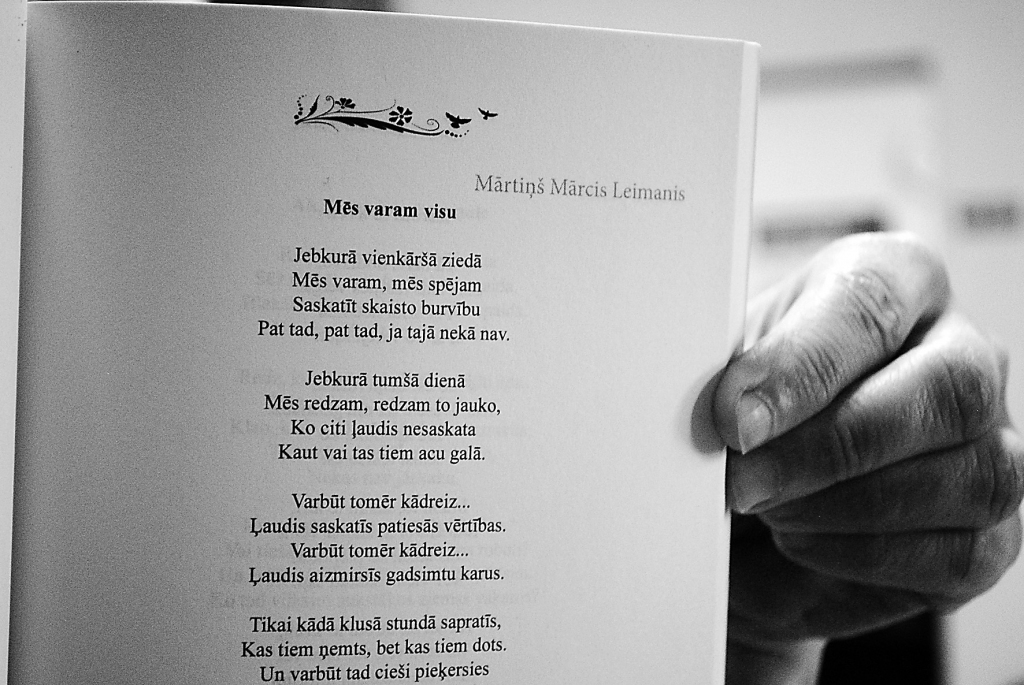 Mārtiņš Mārcis Leimanis
Mēs varam visu
Jebkurā vienkāršā ziedā
Mēs varam, mēs spējam
Saskatīt skaisto burvību
Pat tad, pat tad, ja tajā nekā nav.
Jebkurā tumšā dienā
Mēs redzam, redzam to jauko,
Ko citi ļaudis nesaskata
Kaut vai tas tiem acu galā.
Varbūt tomēr kādreiz...
Ļaudis saskatīs patiesās vērtības.
Varbūt tomēr kādreiz...
Ļaudis aizmirsīs gadsimtu karus.
Tikai kādā klusā stundā sapratīs,
Kas tiem ņemts, bet kas tiem dots.
Un varbūt tad cieši pieķersies